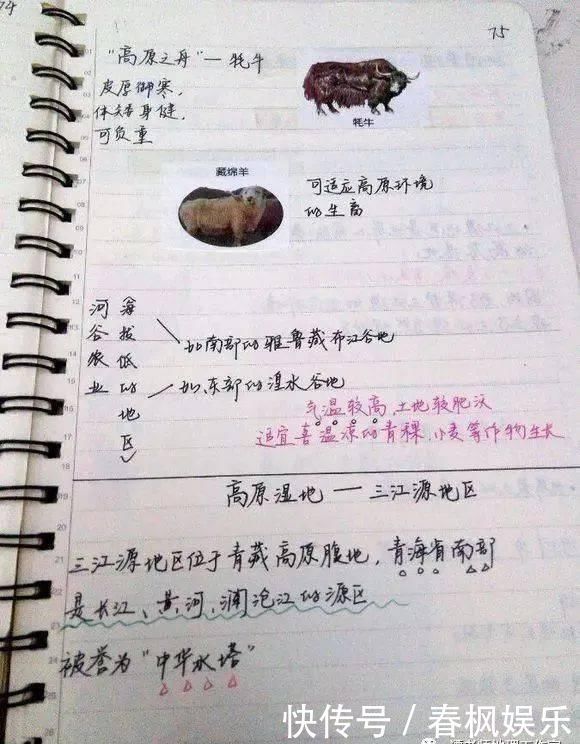 74
75
"高原之舟"—牦牛
皮厚御寒,
体矮身健,
可负重
牦牛
藏绵羊
可适应高原环境
的生畜
河谷农业
海拔低的地区
如南部的雅鲁藏布江谷地
如东部的湟水谷地
气温较高,土地较肥沃
适宜喜温凉的青稞,小麦等作物生长
高原湿地——三江源地区
三江源地区位于青藏高原腹地,青海省南部
是长江、黄河、澜沧江的源区
被誉为"中华水塔"
快传号/春枫娱乐